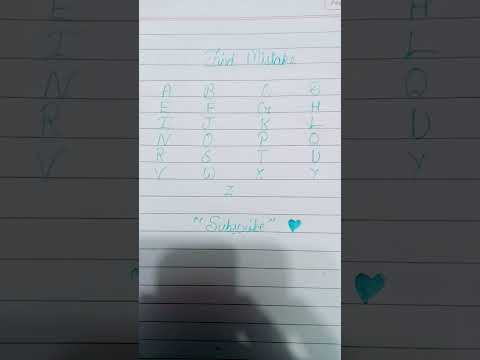 Find Mistake
A B C
E E G H
I J K L
N O P Q
R S T U
V W X Y
Z
"Subscribe" ♥